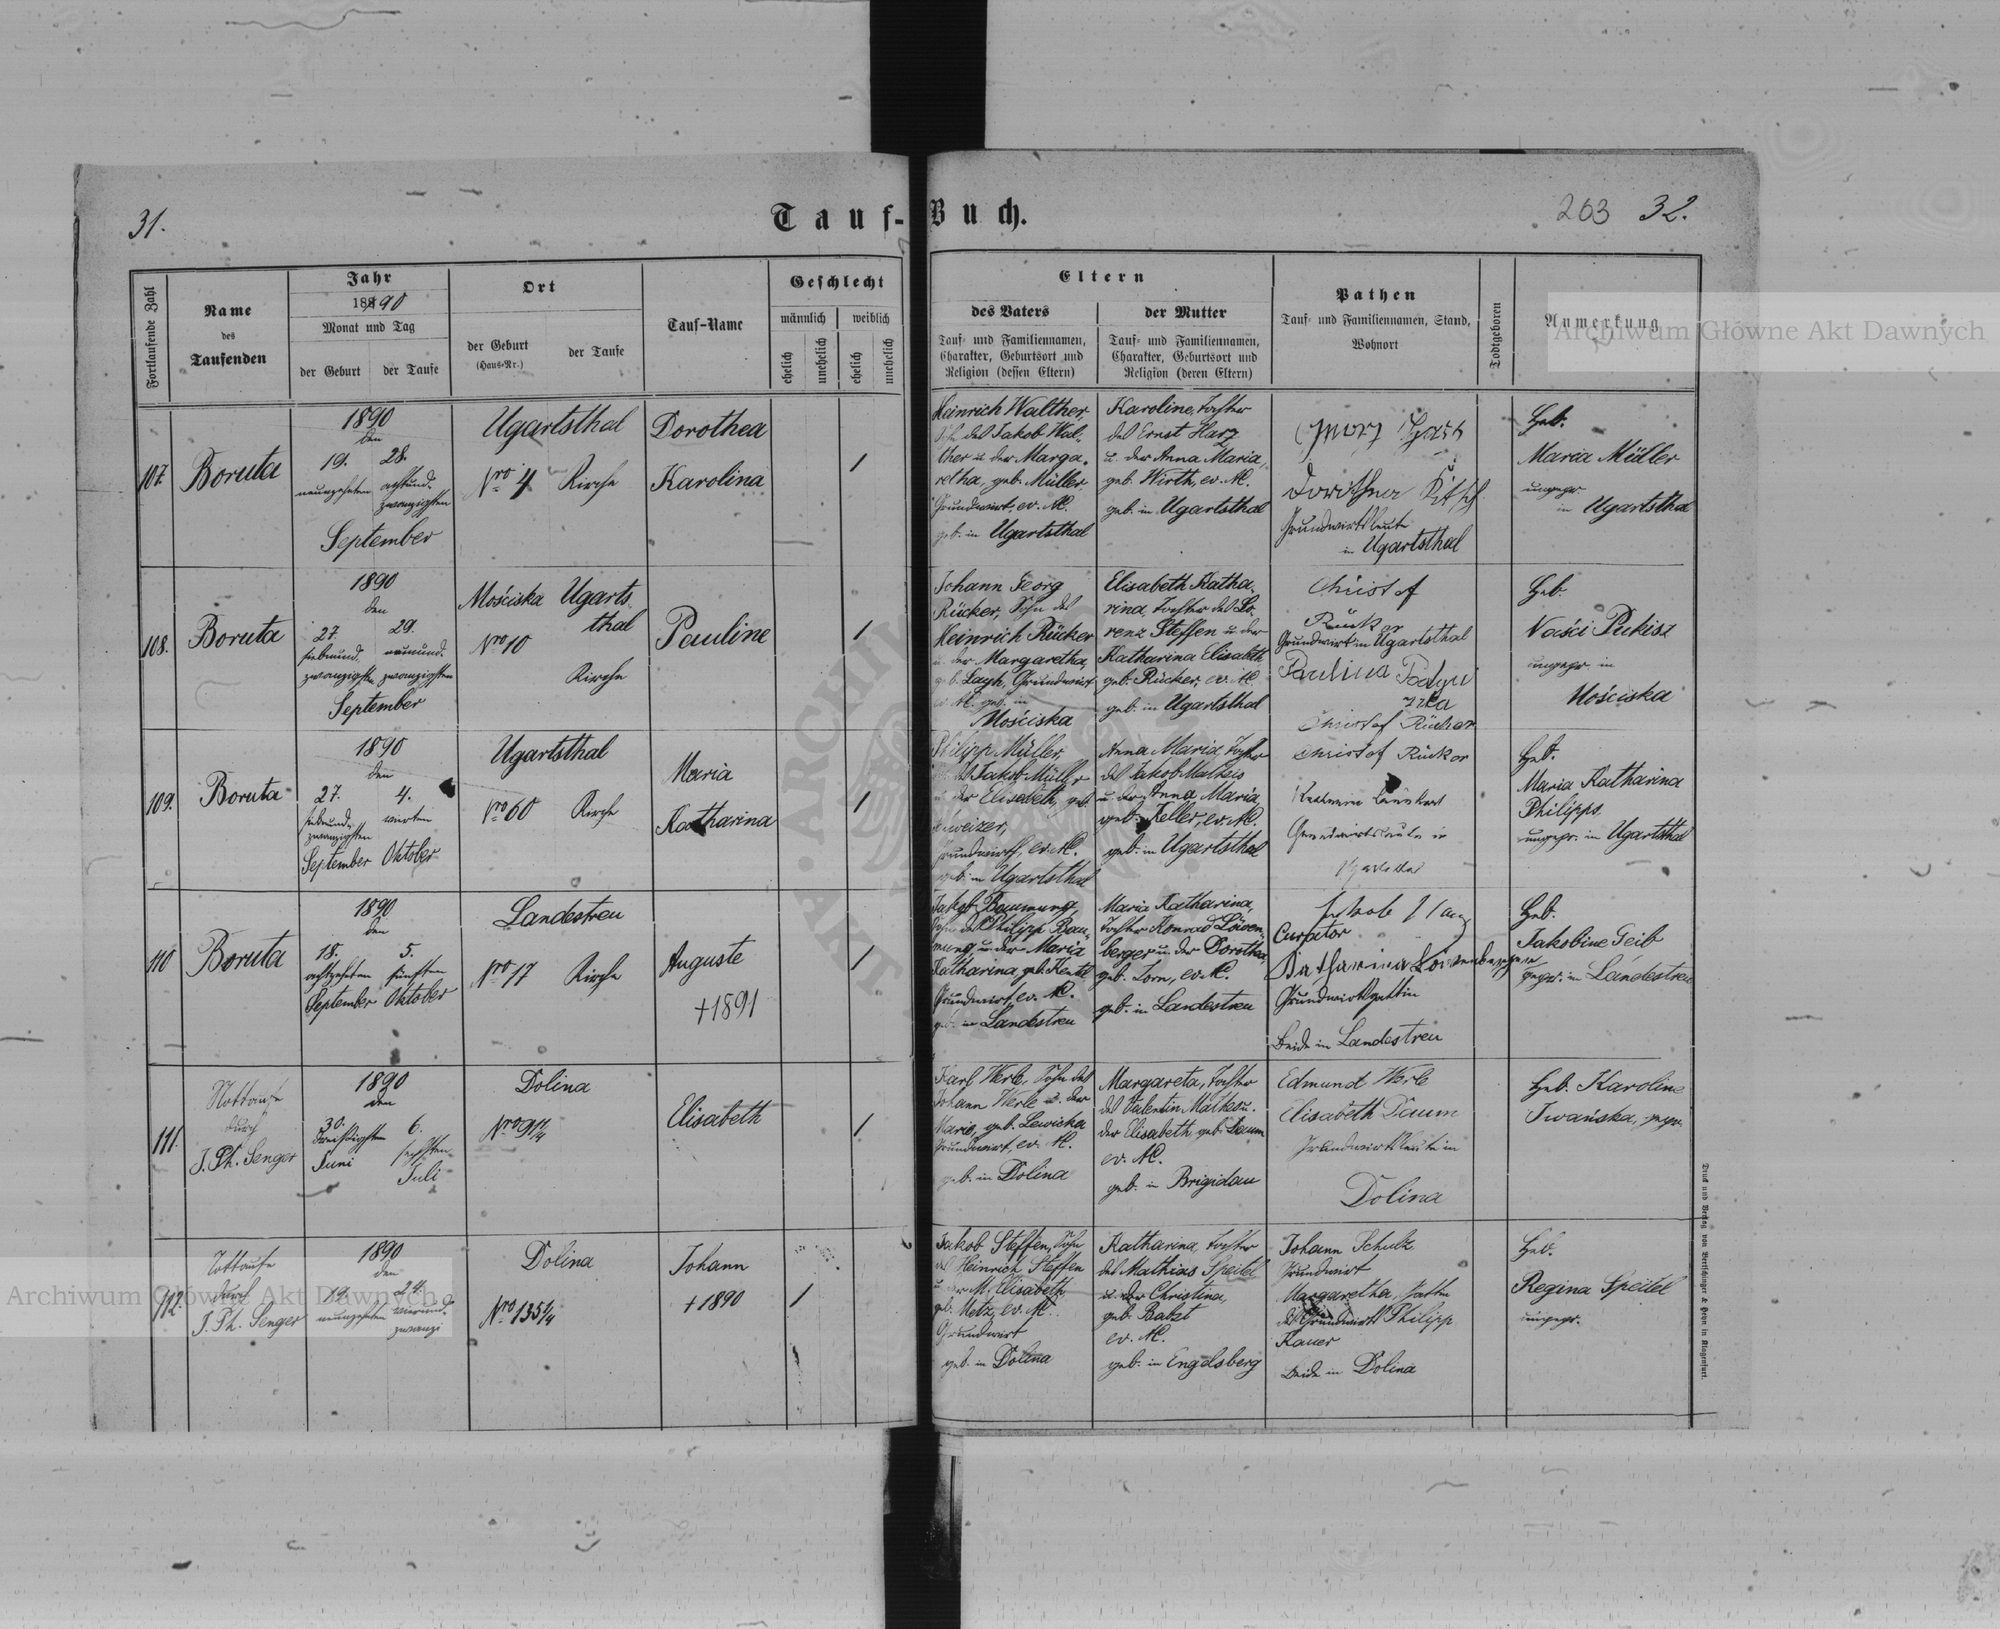 31.
Tauf-Buch.
263 32.
Fortlaufende Zahl
Name
des
Taufenden
Jahr
1890
Monat und Tag
der Geburt
der Taufe
Ort
der Geburt
(Haus-Nr.)
der Taufe
Tauf-Name
Geschlecht
männlich
weiblich
ehelich
unehelich
ehelich
unehelich
Eltern
des Vaters
Tauf- und Familiennamen,
Charakter, Geburtsort und
Religion (dessen Eltern)
der Mutter
Tauf- und Familiennamen,
Charakter, Geburtsort und
Religion (deren Eltern)
Pathen
Tauf- und Familiennamen, Stand,
Wohnort
Todtgeboren
Anmerkung
Archiwum Główne Akt Dawnych
107.
Boruta
1890
den
19. 28.
neunzehnten achtund-
zwanzigsten
September
Ugartsthal
Nro 4 Kirche
Dorothea
Karolina
1
Heinrich Walther,
Sohn des Jakob Wal-
ther u. der Marga-
retha, geb. Müller,
Grundwirt, ev. AC.
geb. in Ugartsthal
Karoline, Tochter
des Ernst Harz
u. der Anna Maria,
geb. Wirth, ev. AC.
geb. in Ugartsthal
Grundwirtsleute
in Ugartsthal
Heb.
Maria Müller
ungepr.
in Ugartsthal
108.
Boruta
1890
den
27. 29.
siebenund- neunund-
zwanzigsten zwanzigsten
September
Mościska Ugarts-
thal
Nro 10
Kirche
Pauline
1
Johann Georg
Rücker, Sohn des
Heinrich Rücker
u. der Margaretha,
geb. Layh, Grundwirt
ev. AC. geb. in
Mościska
Elisabeth Katha-
rina, Tochter des Lo-
renz Steffen u. der
Katharina Elisabeth
geb. Rücker, ev. AC.
geb. in Ugartsthal
Christof
Rücker
Grundwirt in Ugartsthal
Paulina
Christof Rücker
Heb.
ungepr. in
Mościska
109.
Boruta
1890
den
27. 4.
siebenund- vierten
zwanzigsten
September Oktober
Ugartsthal
Nro 60 Kirche
Maria
Katharina
1
Philipp Müller,
Sohn des Jakob Müller
u. der Elisabeth, geb.
Schweizer,
Grundwirt, ev. AC.
geb. in Ugartsthal
Anna Maria, Tochter
des Jakob Matheis
u. der Anna Maria
geb. Keller, ev. AC.
geb. in Ugartsthal
Christof Rücker
Grundwirtsleute in
Heb.
Maria Katharina
Philipps
ungepr. in Ugartsthal
110
Boruta
1890
den
18. 5.
achtzehnten fünften
September Oktober
Landestreu
Nro 17 Kirche
Auguste
+1891
1
Jakob Baumung
Sohn des Philipp Bau-
mung u. der Maria
Katharina, geb.
Grundwirt, ev. AC.
geb. in Landestreu
Maria Katharina,
Tochter Konrad Löwen-
berger u. der Dorothea,
geb. Zorn, ev. AC.
geb. in Landestreu
Jakob
Curator
Katharina Löwenberger
Grundwirtsgattin
Beide in Landestreu
Heb.
Jakobine Geib
gepr. in Landestreu
111.
Nottaufe
durch
J. Ph. Senger
1890
den
30. 6.
dreißigsten sechsten
Juni Juli
Dolina
Nro 91 1/4
Elisabeth
1
Karl Werle, Sohn des
Johann Werle u. der
Maria, geb. Lewicka
Grundwirt, ev. AC.
geb. in Dolina
Margareta, Tochter
des Valentin Mathes u.
der Elisabeth, geb. Daum
ev. AC.
geb. in Brigidau
Edmund Werle
Elisabeth Daum
Grundwirtsleute in
Dolina
Heb. Karoline
Iwańska, gepr.
112.
Nottaufe
durch
J. Ph. Senger
1890
den
19. 24.
neunzehnten vierund-
zwanzi
Dolina
Nro 135 1/4
Johann
+1890
1
Jakob Steffen, Sohn
des Heinrich Steffen
u. der M. Elisabeth,
geb. Metz, ev. AC.
Grundwirt
geb. in Dolina
Katharina, Tochter
des Mathias Speitel
u. der Christina,
geb. Babst
ev. AC.
geb. in Engelsberg
Johann Schulz
Grundwirt
Margaretha, Gattin
des Grundwirts Philipp
Kauer
Beide in Dolina
Heb.
Regina Speitel
ungepr.
Archiwum Główne Akt Dawnych
Druck und Verlag von Bertschinger & Heyn in Klagenfurt.